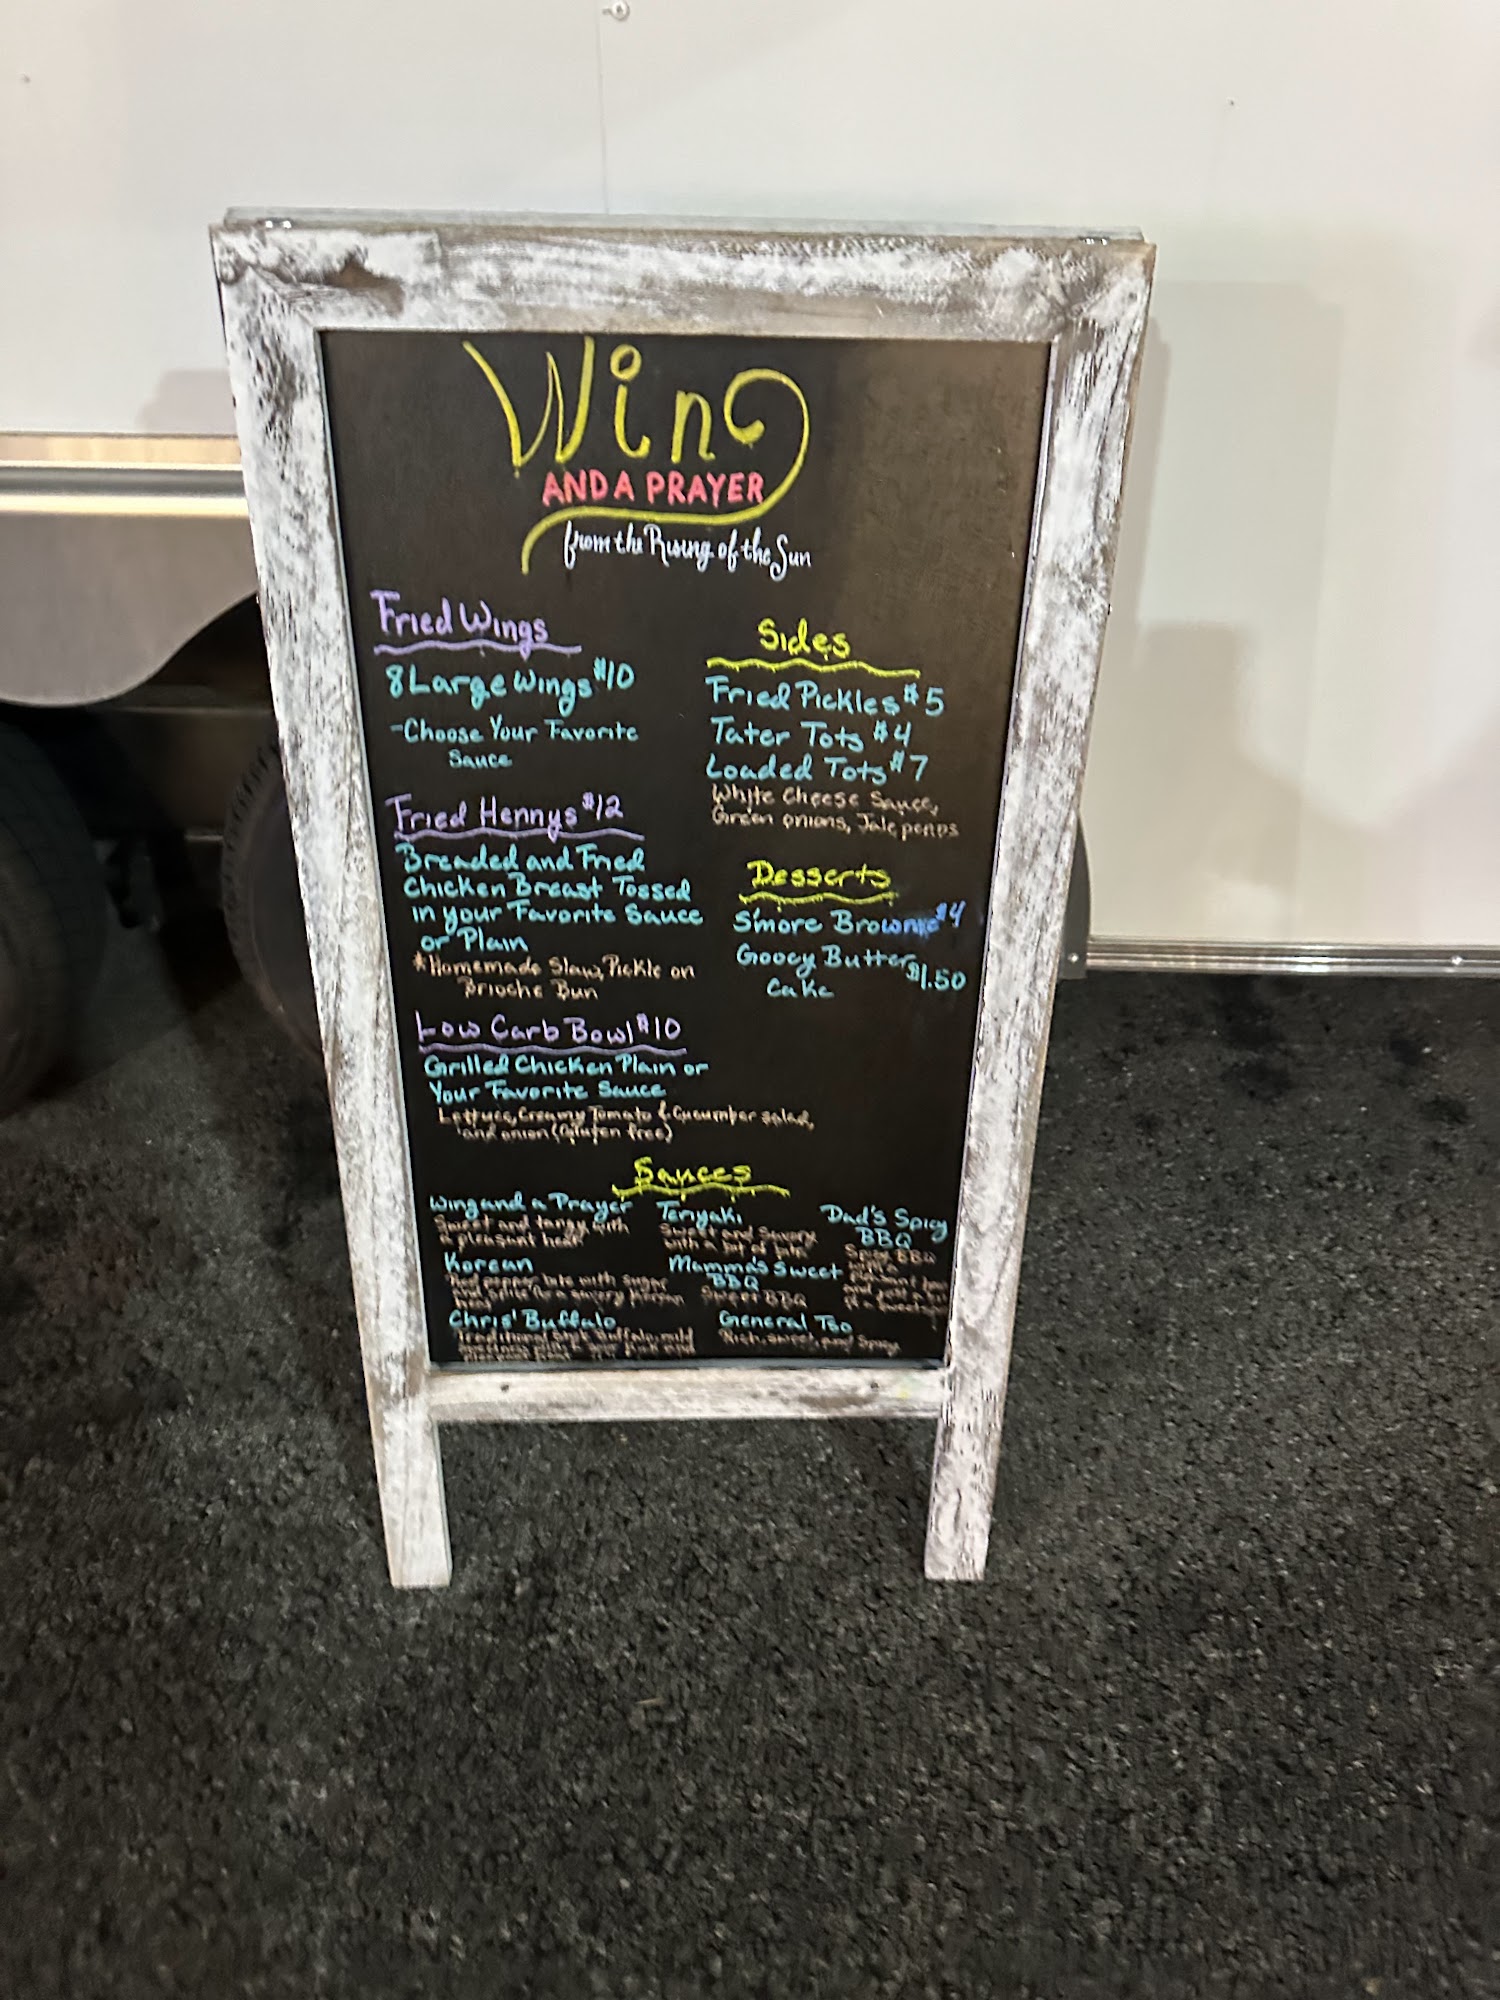 Wing
AND A PRAYER
from the Rising of the Sun
Fried Wings
8 Large Wings $10
-Choose Your Favorite
Sauce
Fried Hennys $12
Breaded and Fried
Chicken Breast Tossed
in your Favorite Sauce
or Plain
*Homemade Slaw, Pickle on
Brioche Bun
Low Carb Bowl $10
Grilled Chicken Plain or
Your Favorite Sauce
Lettuce, Creamy Tomato & Cucumber salad,
and onion (Gluten free)
Sides
Fried Pickles $5
Tater Tots $4
Loaded Tots $7
White Cheese Sauce,
Green onions, Jalepenos
Desserts
S'more Brownie $4
Gooey Butter $1.50
Cake
Sauces
Wing and a Prayer
Sweet and tangy with
a pleasant heat
Korean
Red pepper bite with sugar
and spice for a savory
Chris' Buffalo
Traditional style Buffalo, mild
Teriyaki
Sweet and Savory
with a bit of bite
Mamma's Sweet
BBQ
Sweet BBQ
General Tso
Rich, sweet, and Spicy
Dad's Spicy
BBQ
Spicy BBQ
with a
pleasant
and just a
of a sweet